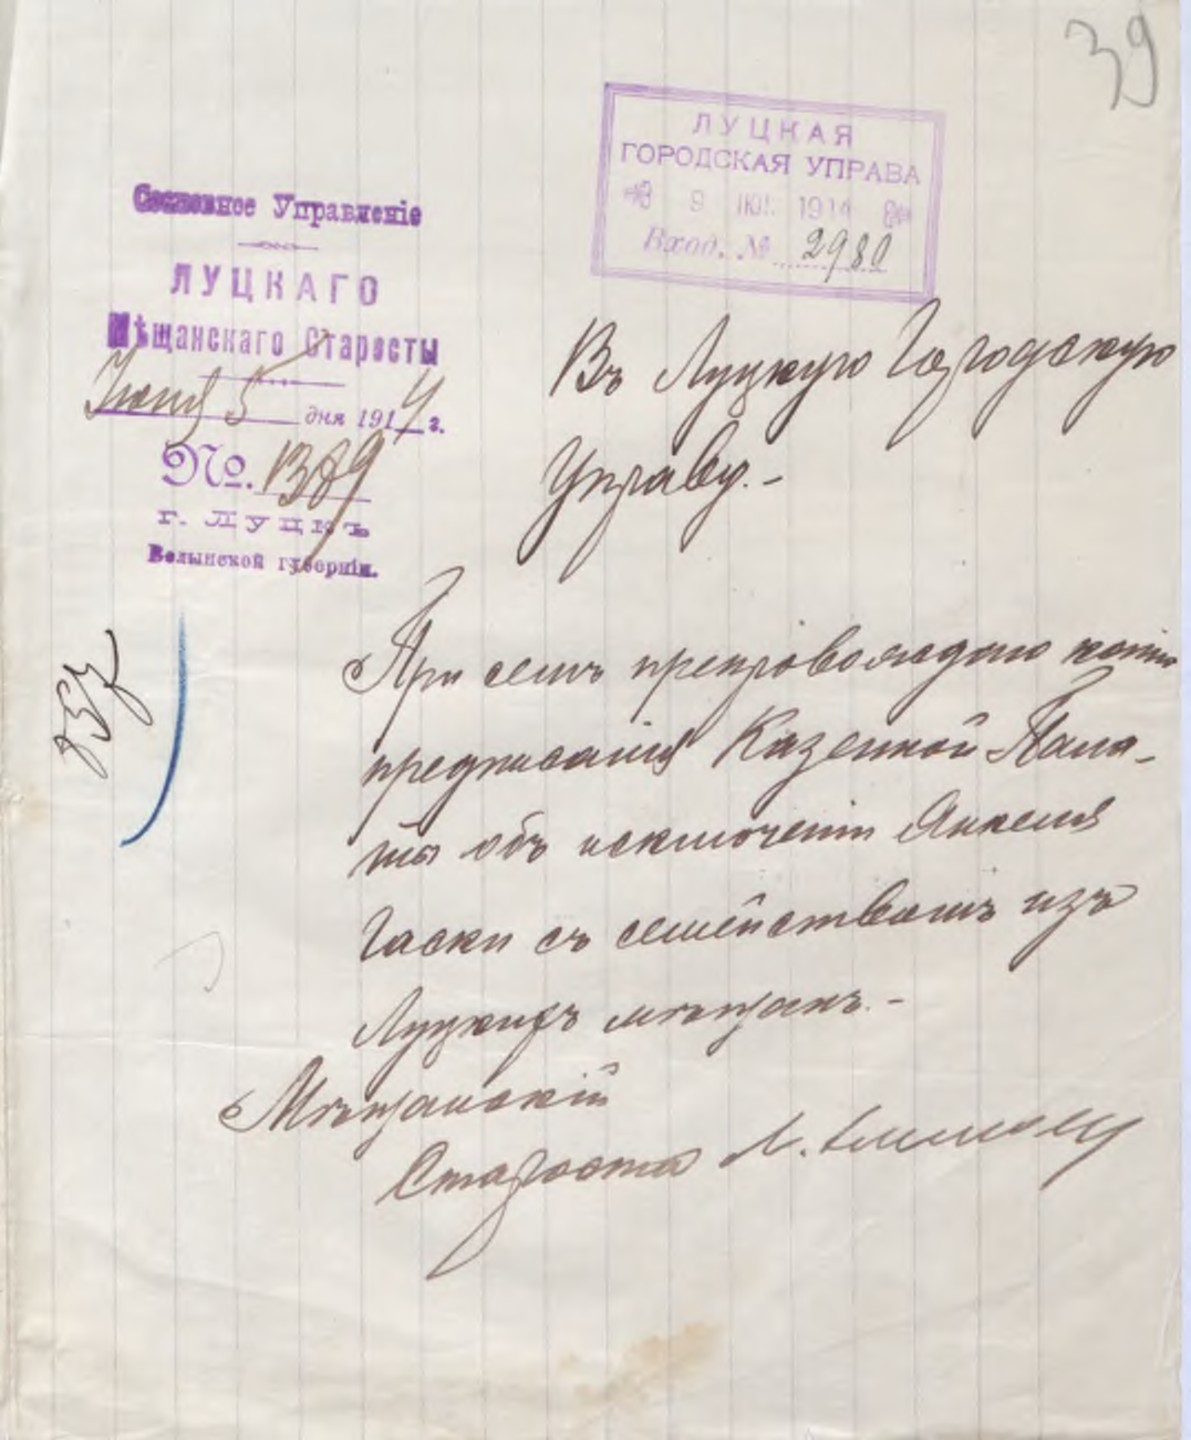 39
ЛУЦКАЯ
ГОРОДСКАЯ УПРАВА
9 ІЮ 1914
Вход. № 2980
Сословное Управленіе
ЛУЦКАГО
Мѣщанскаго Старосты
Іюня 5 дня 1914 г.
№. 1389
г. ЛУЦКЪ
Волынской губерніи.
Въ Луцкую Городскую
Управу.-
При семъ препровождаю копію
предписанія Казенной Пала-
ты объ исключеніи Янкеля
Гаски съ семействомъ изъ
Луцкихъ мѣщанъ.-
Мѣщанскій
Староста Л.